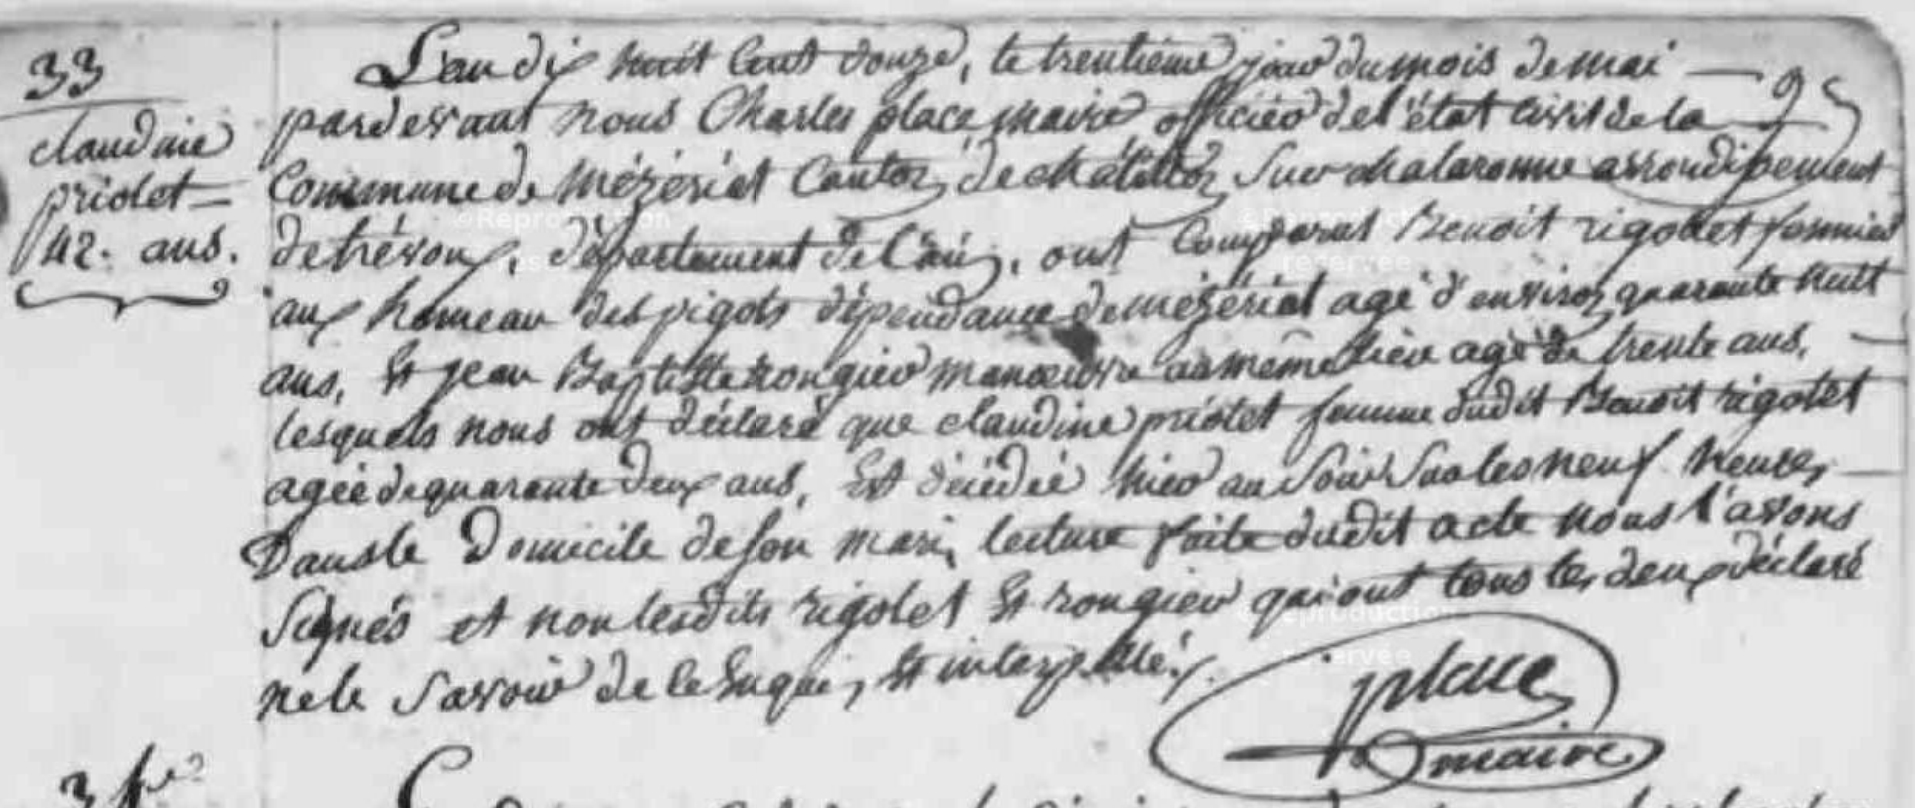 33
claudine
priolet =
42. ans.
L'an dix huit cent douze, le trentieme jour du mois de mai —
pardevant nous Charles place maire officier de l'état civil de la —
95
Commune de Mézériat Canton de chatillon Sur chalaronne arrondissement
de trévoux, département de l'ain, ont Comparus Benoit rigolet fermier
aux hameau des pigots dépendance de mézériat agé d'environ quarante huit
ans, Et jean Baptiste rongier manoeuvre au même lieu agé de trente ans, —
lesquels nous ont déclaré que claudine priolet femme dudit Benoit rigolet
agée de quarante deux ans, Est décédée hier au Soir Sur les neuf heures, —
Dans le Domicile de son mari, lecture faite dudit acte nous l'avons
Signés et non lesdits rigolet Et rongier qui ont tous les deux déclaré
ne le Savoir de ce Enquis, Et interpellés.
place
maire